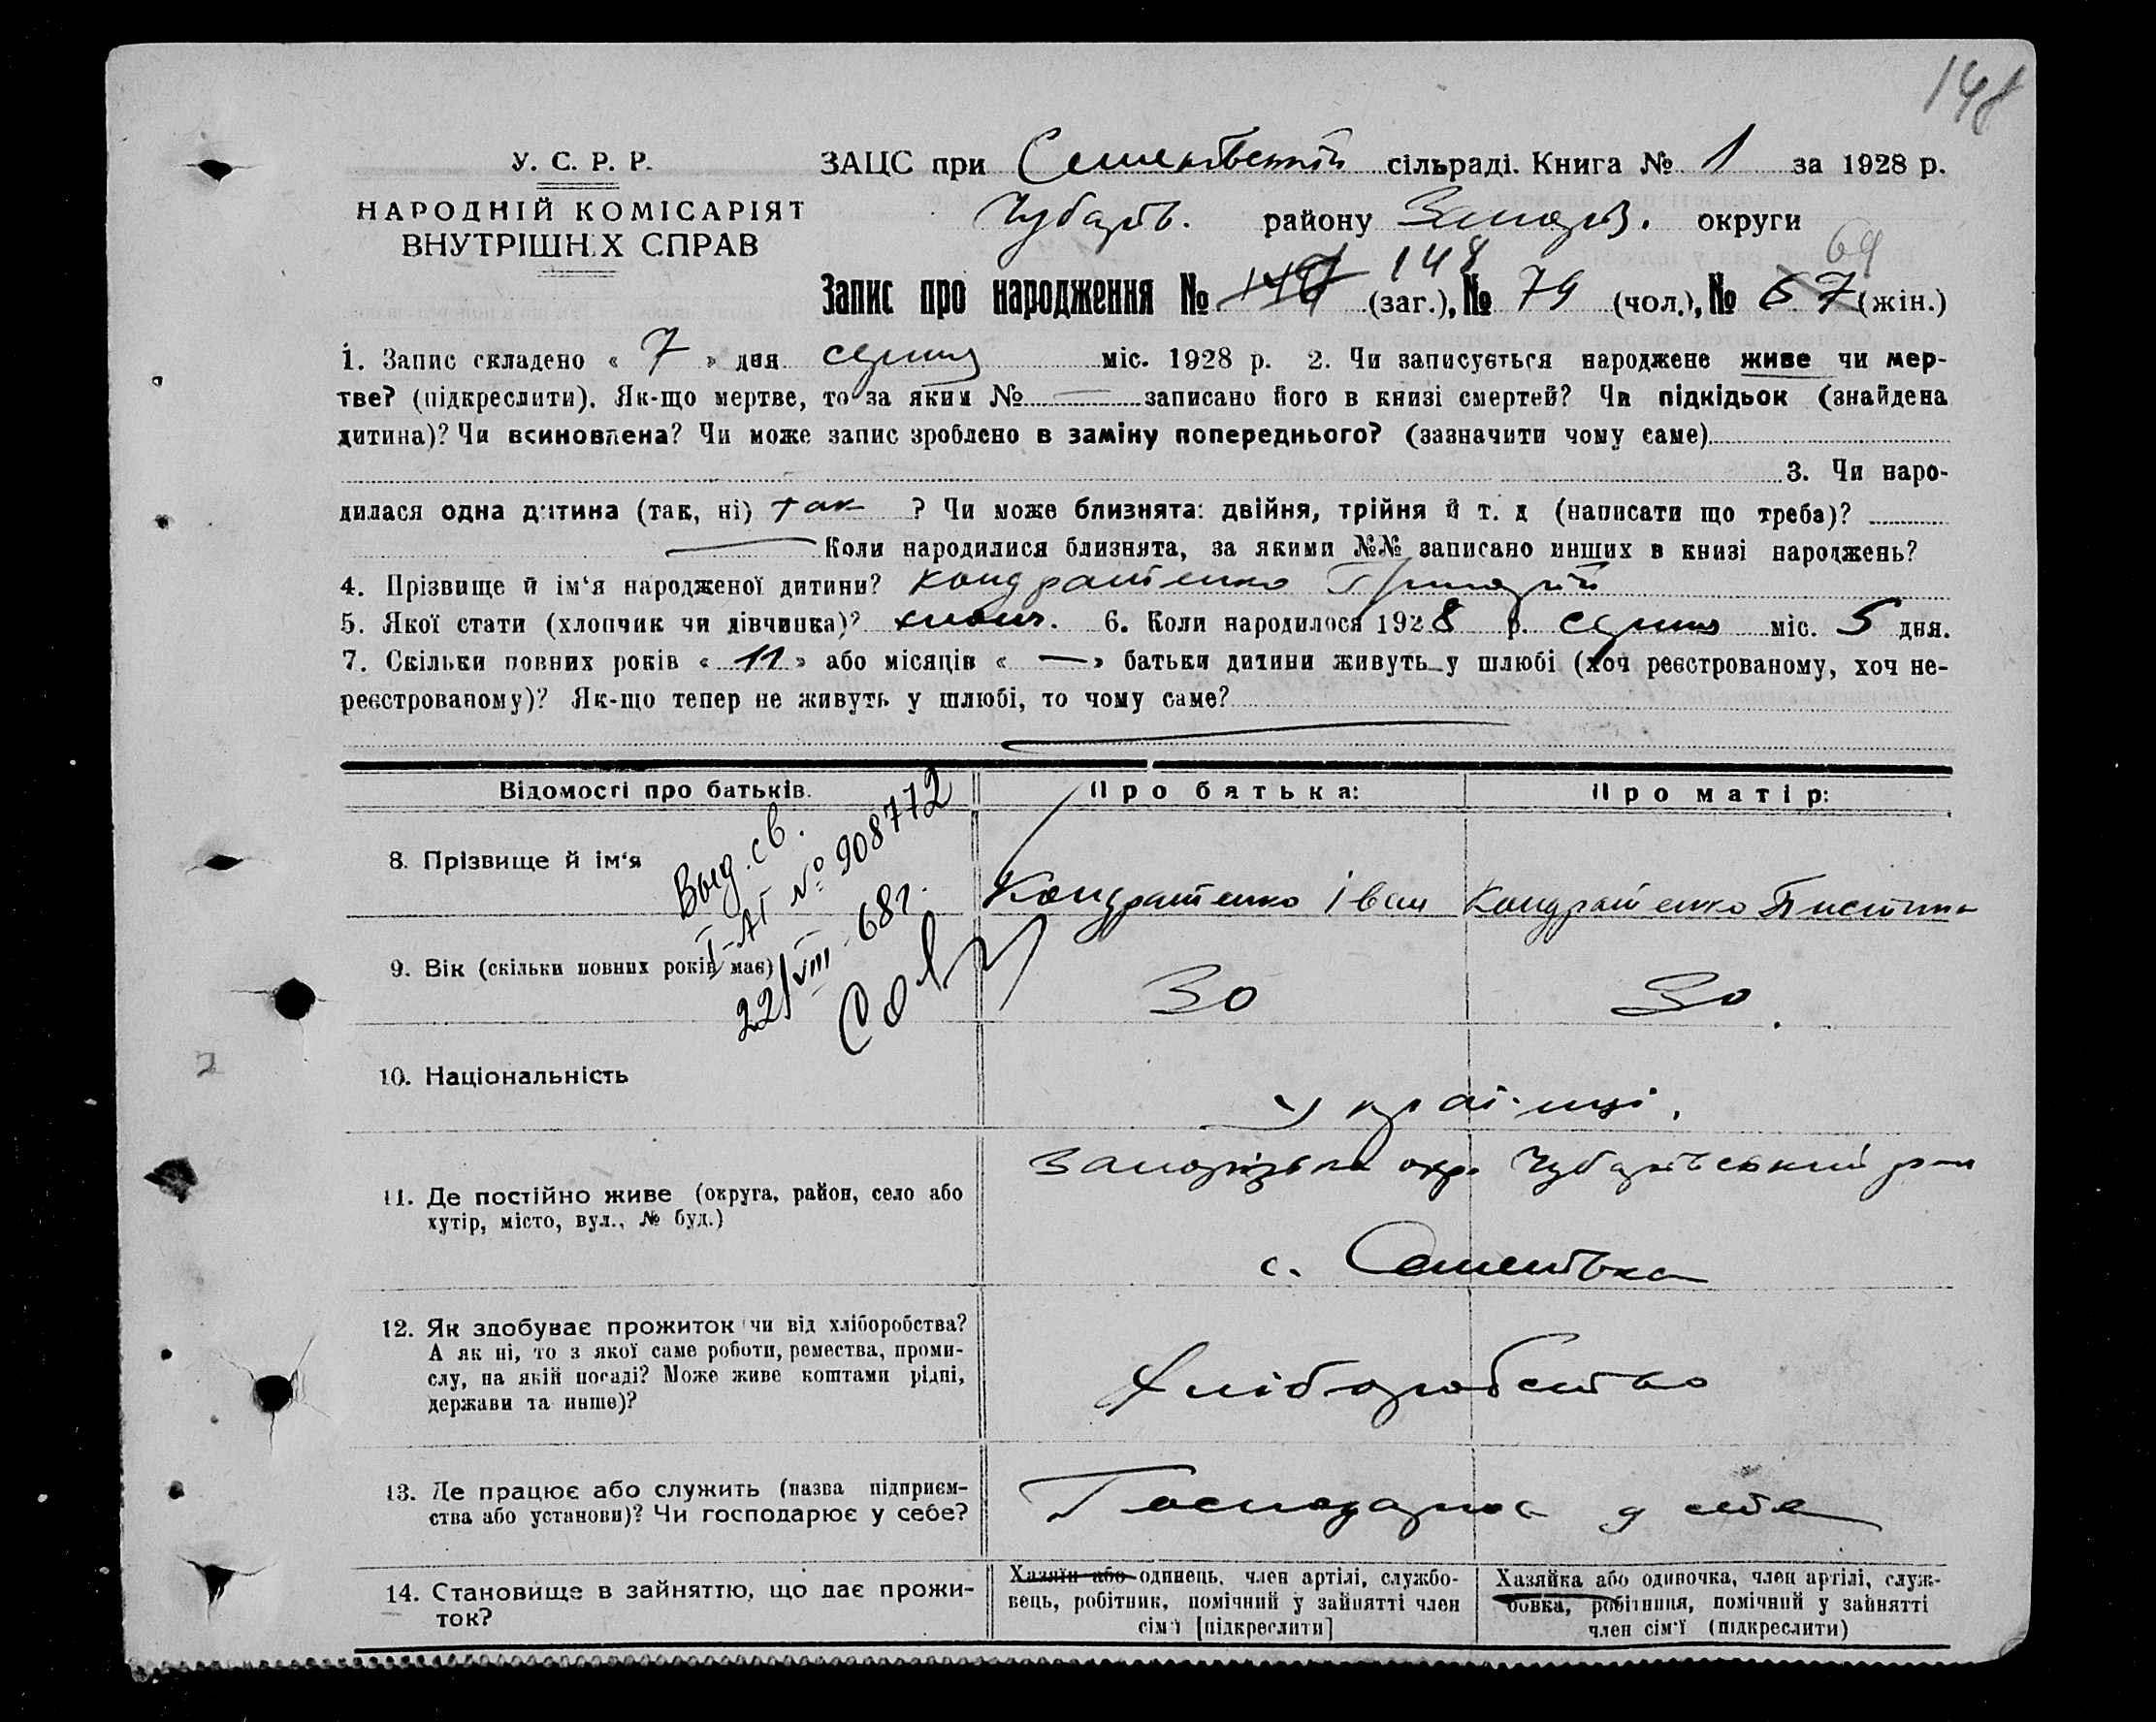 148
У. С. Р. Р.
НАРОДНІЙ КОМІСАРІЯТ
ВНУТРІШНІХ СПРАВ
ЗАЦС при Семенівській сільраді. Книга № 1 за 1928 р.
Чубарів. району Запоріз. округи
69
148
Запис про народження № (заг.), № 79 (чол.), № 67 (жін.)
1. Запис складено « 7 » дня серпня міс. 1928 р. 2. Чи записується народжене живе чи мер-
тве? (підкреслити). Як-що мертве, то за яким № — записано його в книзі смертей? Чи підкідьок (знайдена
дитина)? Чи всиновлена? Чи може запис зроблено в заміну попереднього? (зазначити чому саме)
3. Чи наро-
дилася одна дитина (так, ні) так ? Чи може близнята: двійня, трійня й т. д (написати що треба)?
Коли народилися близнята, за якими №№ записано инших в книзі народжень?
4. Прізвище й ім‘я народженої дитини? Кондратенко Григорій
5. Якої стати (хлопчик чи дівчинка)? хлопч. 6. Коли народилося 1928 р. серпня міс. 5 дня.
7. Скільки повних років « 11 » або місяців « — » батьки дитини живуть у шлюбі (хоч реєстрованому, хоч не-
реєстрованому)? Як-що тепер не живуть у шлюбі, то чому саме?
Відомості про батьків. Про батька: Про матір:
Выд. св.
I-АГ № 908772
22/VIII 68г.
8. Прізвище й ім‘я Кондратенко Іван Кондратенко
9. Вік (скільки повних років має) 30 30.
10. Національність Українці.
11. Де постійно живе (округа, район, село або
хутір, місто, вул., № буд.)
Запорізька окр. Чубарівський рай
с. Семенівка
12. Як здобуває прожиток чи від хліборобства?
А як ні, то з якої саме роботи, ремества, проми-
слу, на якій посаді? Може живе коштами рідні,
держави та инше)?
Хліборобство
13. Де працює або служить (назва підприєм-
ства або установи)? Чи господарює у себе?
Господарює у себе
14. Становище в зайняттю, що дає прожи-
ток?
Хазяїн або одинець, член артілі, службо-
вець, робітник, помічний у зайнятті член
сім‘ї [підкреслити]
Хазяйка або одиночка, член артілі, служ-
бовка, робітниця, помічний у зайнятті
член сім‘ї (підкреслити)